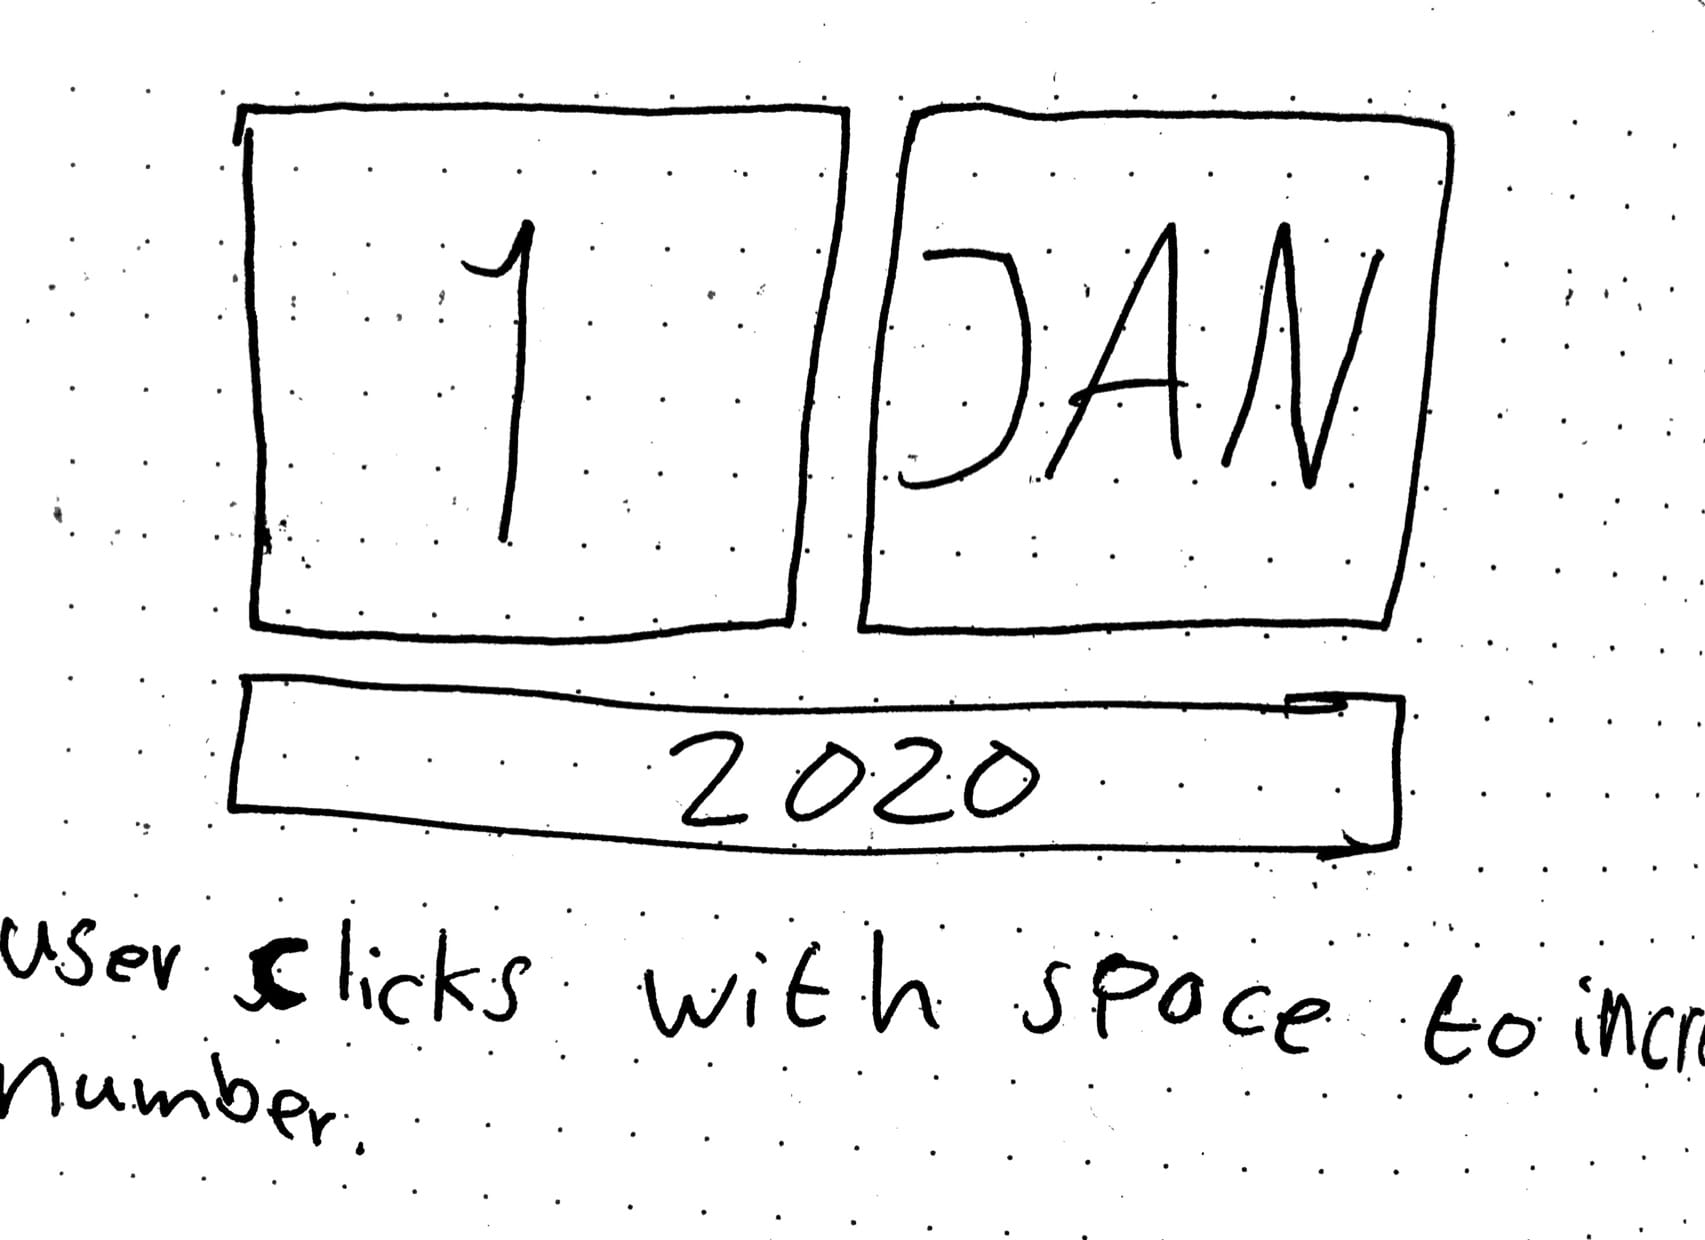 1 JAN
2020
user clicks with space to incre
number.